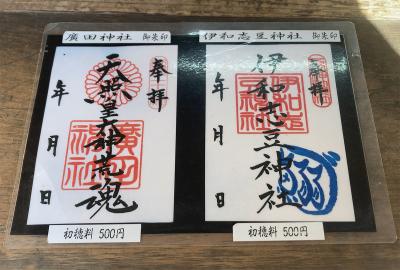 廣田神社 御朱印
伊和志豆神社 御朱印
奉拝
天照皇大神荒魂
廣田神社
年 月 日
初穂料 500円
奉拝
伊和志豆神社
年 月 日
初穂料 500円